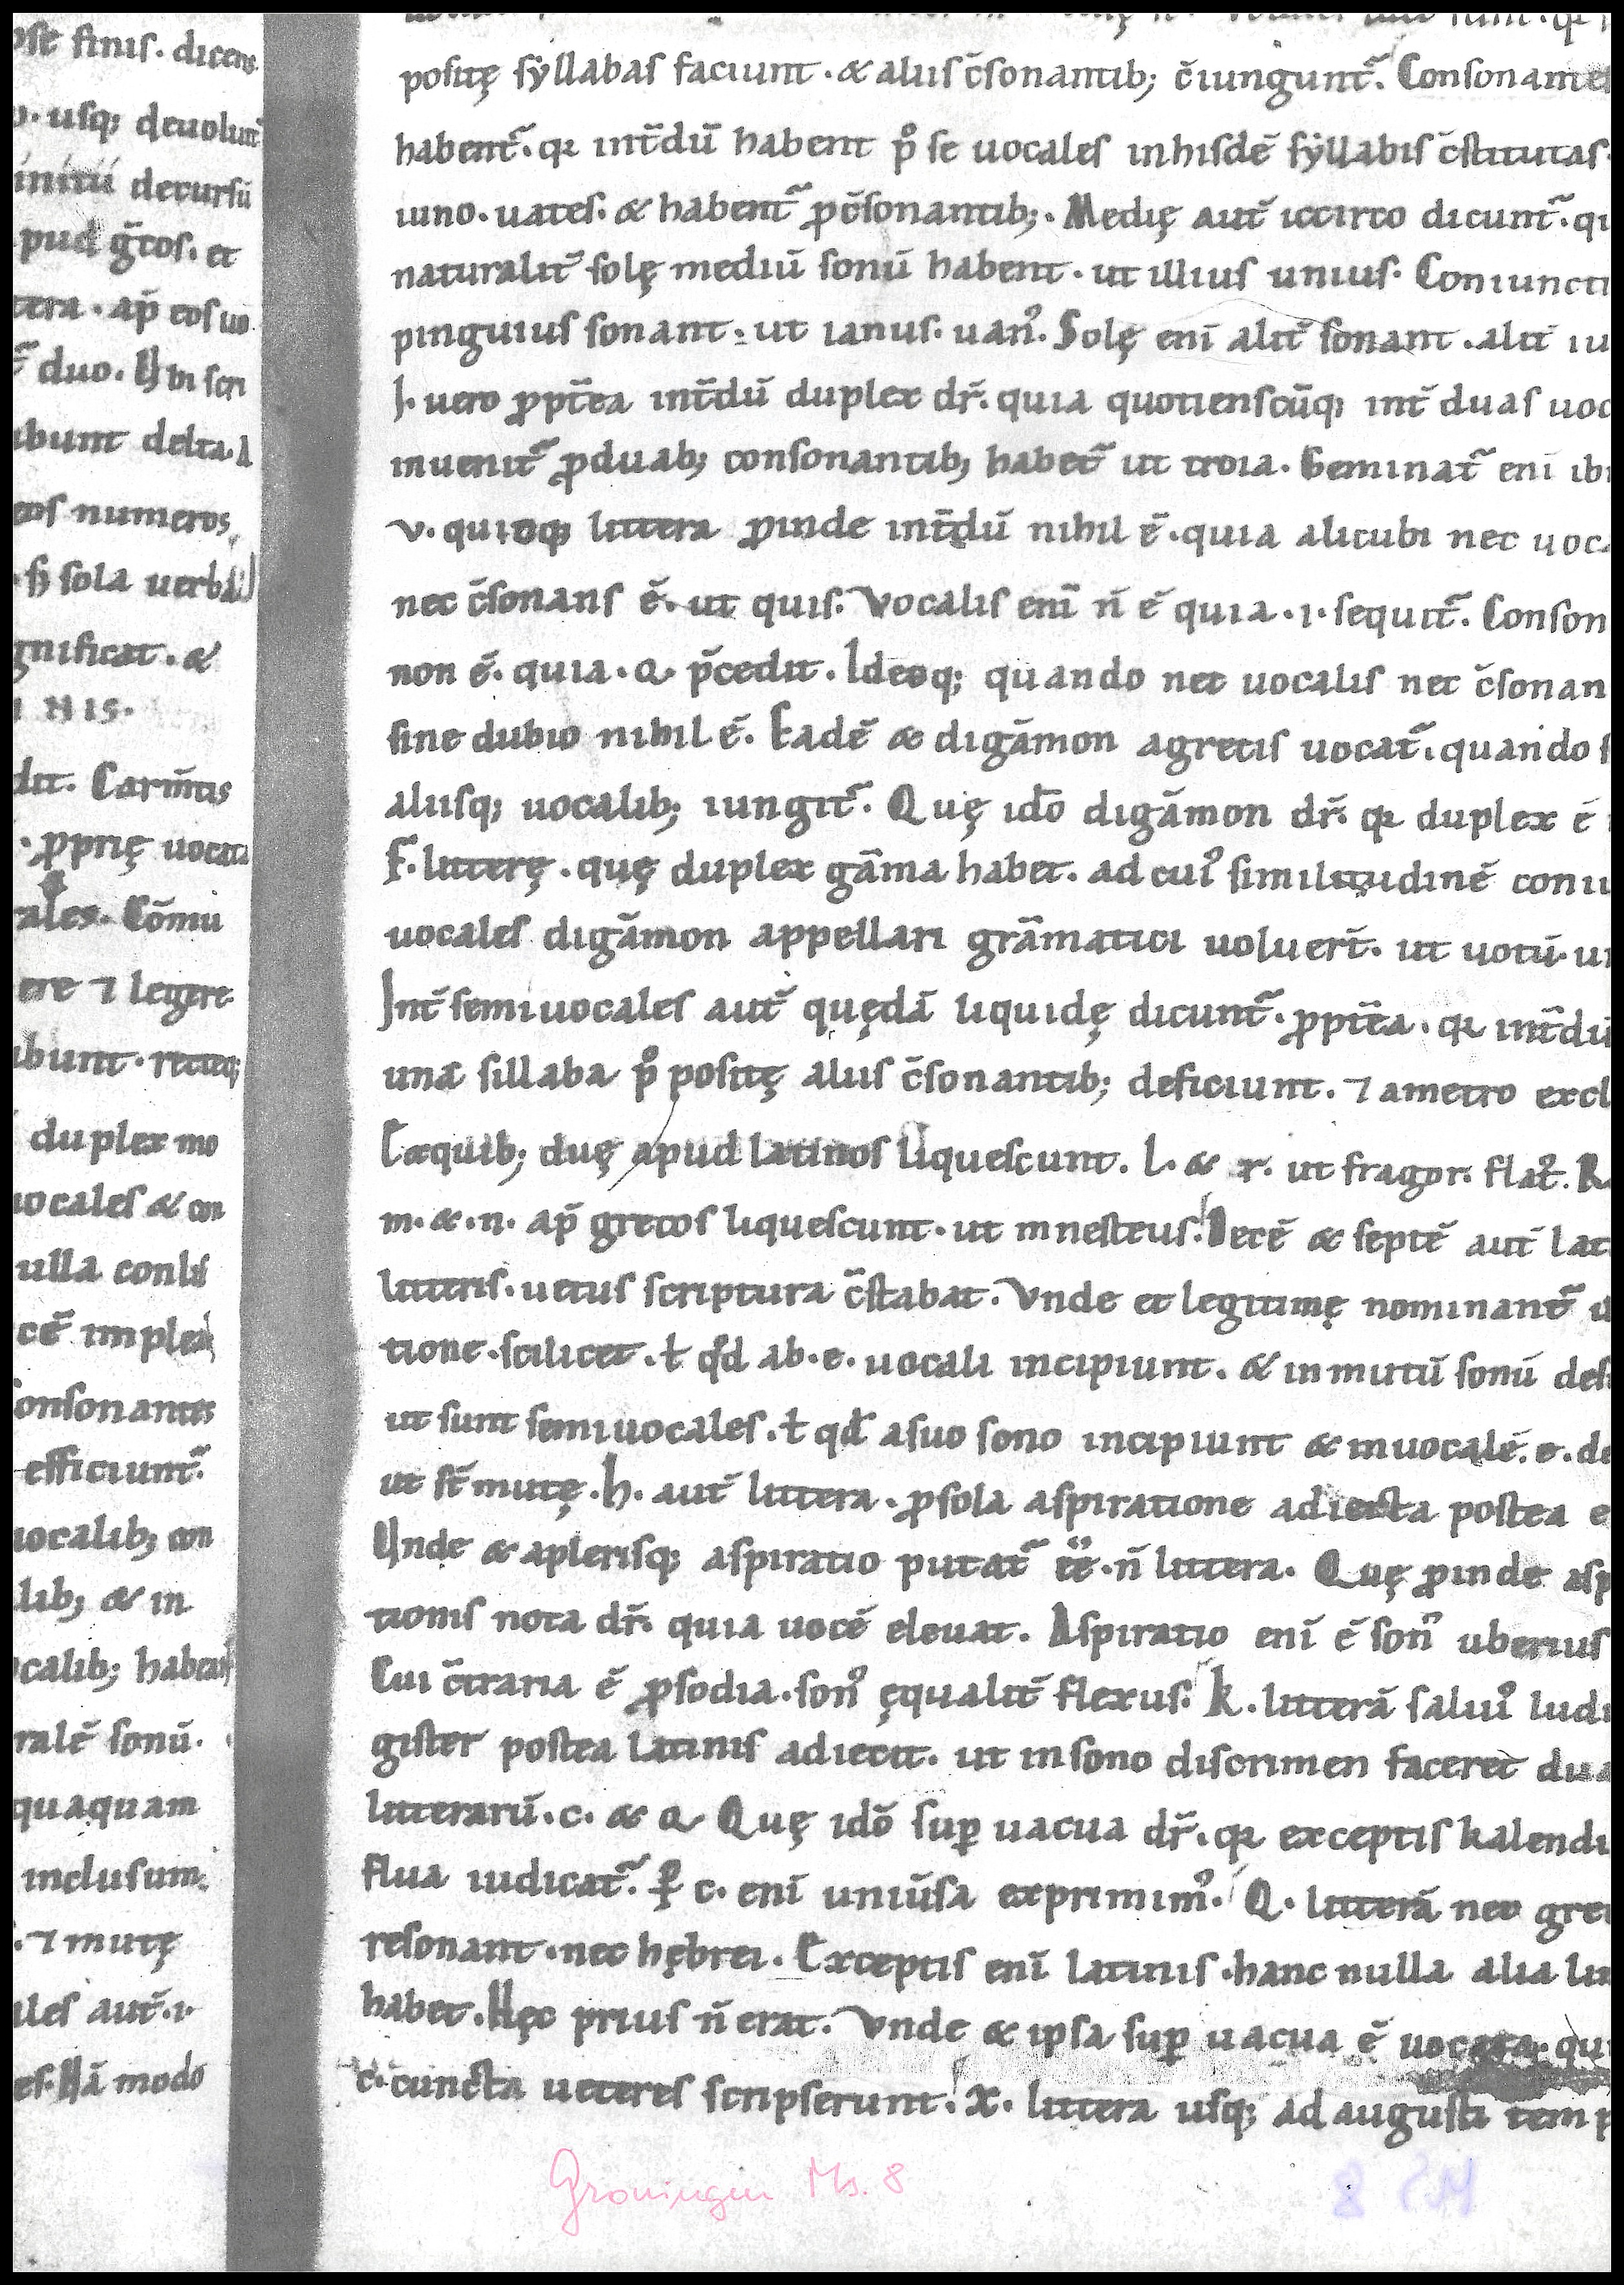 pse finis. dicens.
v. usq; deuolunt̃
initiũ decursũ
pud g̃cos. et
tera. ap̃ eos uo
duo. Vbi scri
ibunt delta. λ
eos numeros.
sola uerba
gnificat. &
NIS.
dit. Carm̃tis
. ꝓprię uocata
rales. Cõmu
ere ⁊ legere
ibunt. recteq;
duplex mo
uocales & con
ulla conlis
cẽ implex
onsonantes
efficiunt᷑.
uocalib; con
lib; & in
ocalib; habeant
ralẽ sonũ.
quaquam
inclusum.
. ⁊ mutę
ales aut̃. i.
es. Nã modo
positę sẏllabas faciunt. & aliis c̃sonantib; c̃iungunt᷑. Consonantes
habent᷑. qꝛ int̃dũ habent p̊ se uocales inhisdẽ sẏllabis c̃stitutas.
iuno. uates. & habent᷑ ꝓc̃sonantib;. Medię aut̃ iccirco dicunt᷑. qi
naturalit̃ solę mediũ sonũ habent. ut illius unius. Coniuncti
pinguius sonant. ut ianus. uanꝰ. Solę enĩ alit̃ sonant. alit̃ iu
I. uero ꝓpt̃ea int̃dũ duplex dr̃. quia quotienscũq; int̃ duas uoc
inuenit᷑ ꝓduab; consonantib; habet᷑ ut troia. Geminat᷑ enĩ ibi
v. quioq; littera ꝓinde int̃dũ nihil ẽ. quia alicubi nec uoca
nec c̃sonans ẽ. ut quis. Vocalis enĩ ñ ẽ quia. i. sequit᷑. Conson
non ẽ. quia. Q. p̃cedit. Ideoq; quando nec uocalis nec c̃sonan
sine dubio nihil ẽ. Eadẽ & digãmon agrecis uocat᷑. quando s
aliisq; uocalib; iungit᷑. Quę idõ digãmon dr̃. qꝛ duplex ẽ
F. litterę. quę duplex gãma habet. ad cuiꝰ similitudinẽ coniu
uocales digãmon appellari grãmatici uoluer̃t. ut uotũ. ui
Int̃ semiuocales aut̃ quędã liquidę dicunt᷑. ꝓpt̃ea. qꝛ int̃dũ
una sillaba p̊ positę aliis c̃sonantib; deficiunt. ⁊ ametro excl
Eequib; duę apud latinos liquescunt. l. & r. ut fragor. flatꝰ. R
m. &. n. ap̃ grecos liquescunt. ut mnesteus. Decẽ & septẽ aut̃ lat
litteris. uetus scriptura c̃stabat. Vnde et legitimę nominant᷑
tione. scilicet. ł qđ ab. e. uocali incipiunt. & inmutũ sonũ desi
ut sunt semiuocales. ł qđ asuo sono incipiunt & inuocalẽ. e. de
ut st̃ mutę. h. aut̃ littera. ꝓsola aspiratione adiecta postea e
Vnde & aplerisq; aspiratio putat᷑ ẽẽ. ñ littera. Quę ꝓinde asp
tionis nota dr̃. quia uocẽ eleuat. Aspiratio enĩ ẽ sonꝰ uberius
Cui c̃traria ẽ ꝓsodia. sonꝰ ęqualit̃ flexus. k. litterã saluiꝰ ludi
gister postea latinis adiecit. ut insono discrimen faceret dua
litterarũ. c. & Q Quę idõ suꝑ uacua dr̃. qꝛ exceptis kalendi
flua iudicat᷑. ꝑ c. enĩ uniũsa exprimimꝰ. Q. litterã nec grec
resonant. nec hębrei. Exceptis enĩ latinis. hanc nulla alia lin
habet. Hęc prius ñ erat. Vnde & ipsa suꝑ uacua ẽ uocata. qui
c. cuncta ueteres scripserunt. X. littera usq; ad augusti temp
Groningen Ms. 8